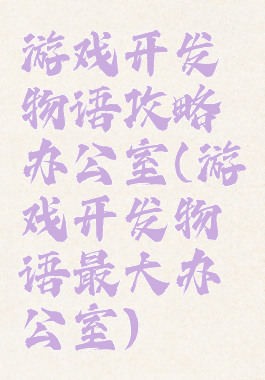 游戏开发
物语攻略
办公室(游
戏开发物
语最大办
公室)